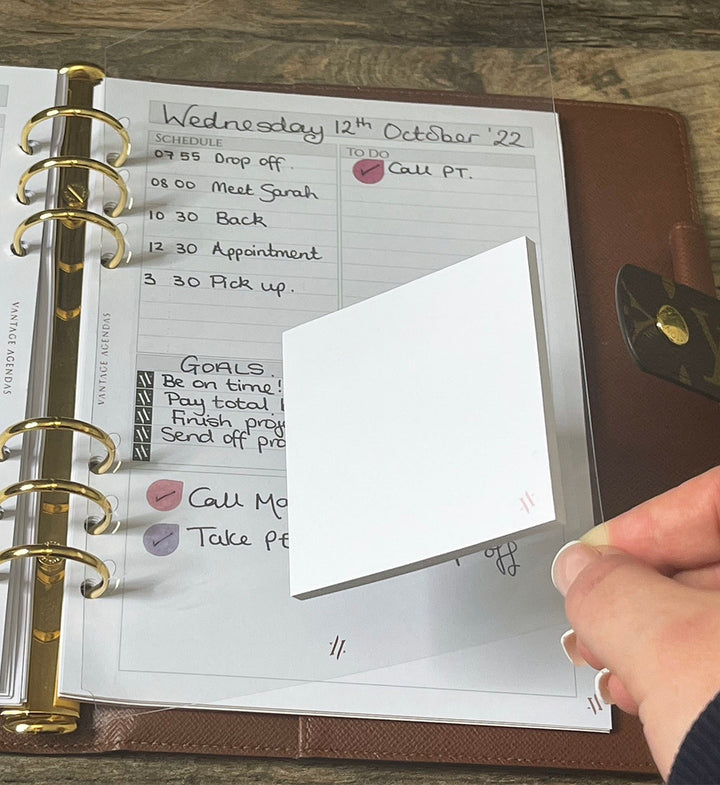 Wednesday 12th October '22
SCHEDULE
07 55 Drop off.
08 00 Meet Sarah
10 30 Back
12 30 Appointment
3 30 Pick up.
TO DO
Call PT.
GOALS.
Be on time!
Pay total
Finish
Send off
Call
Take
off
VANTAGE AGENDAS
VANTAGE AGENDAS